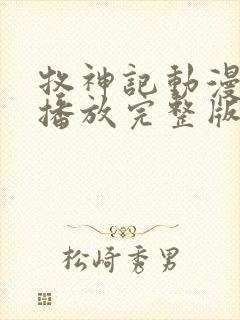 牧神記動漫
播放完整版
松崎秀男